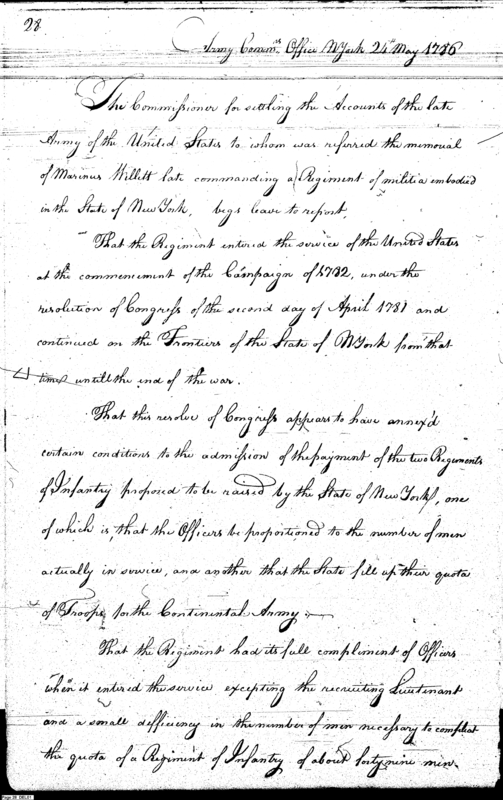 28
Army Commrs. Office NYork 24th May 1786
The Commissioner for settling the Accounts of the late
Army of the United States to whom was referred the memorial
of Marinus Willett late commanding a Regiment of militia embodied
in the State of New York, begs leave to report,
That the Regiment entered the service of the United States
at the commencement of the Campaign of 1782, under the
resolution of Congress of the second day of April 1781 and
continued on the Frontiers of the State of NYork from that
time untill the end of the war.
That this resolve of Congress appears to have annex'd
certain conditions to the admission of the payment of the two Regiments
of Infantry proposed to be raised by the State of New York, one
of which is that the Officers be proportioned to the number of men
actually in service, and another that the State fill up their quota
of Troops for the Continental Army.
That the Regiment had its full compliment of Officers
when it entered the service excepting the recruiting Lieutenant
and a small defficiency in the number of men necessary to compleat
the quota of a Regiment of Infantry of about forty nine men.